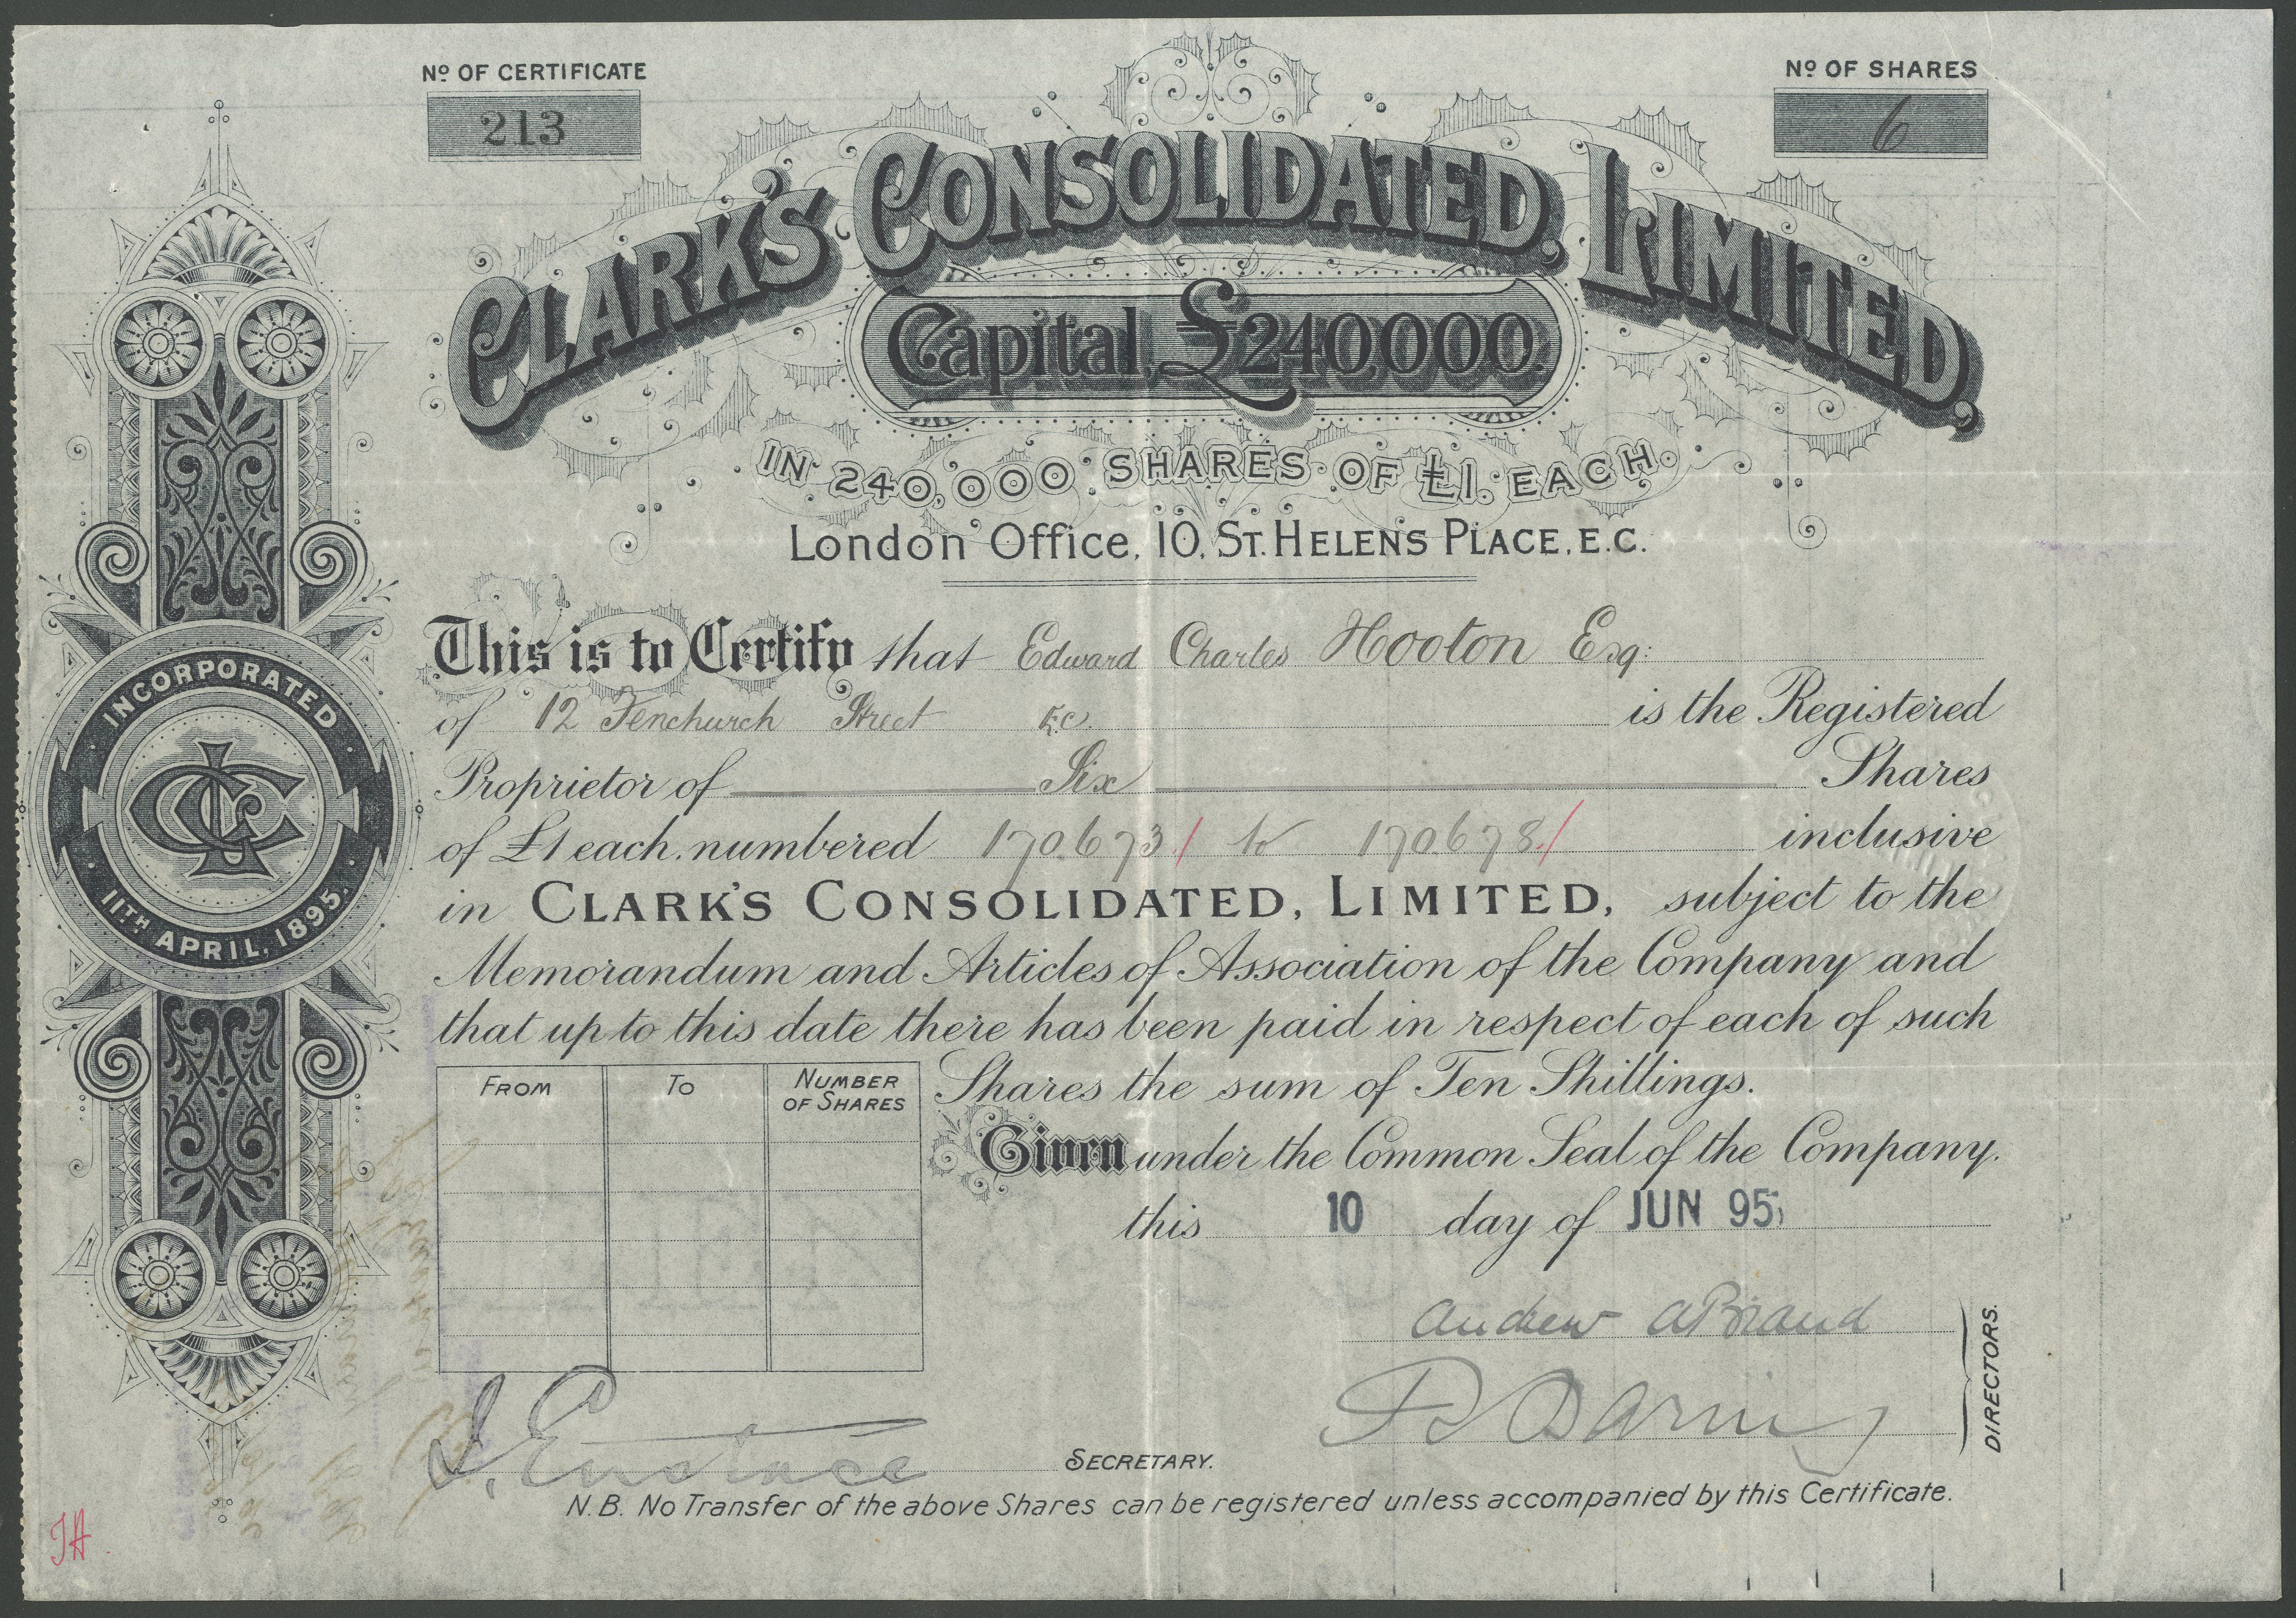 Nº OF CERTIFICATE
213
Nº OF SHARES
6
CLARK'S CONSOLIDATED, LIMITED,
Capital, £240,000.
IN 240,000 SHARES OF £1. EACH.
London Office, 10, ST. HELENS PLACE, E.C.
This is to Certify that Edward Charles Hooton Esq:
of 12 Fenchurch Street E.C. is the Registered
Proprietor of Six Shares
of £1 each, numbered 170673/ to 170678/ inclusive
in CLARK'S CONSOLIDATED, LIMITED, subject to the
Memorandum and Articles of Association of the Company and
that up to this date there has been paid in respect of each of such
Shares the sum of Ten Shillings.
Given under the Common Seal of the Company.
this 10 day of JUN 95
FROM TO NUMBER OF SHARES
Andrew
DIRECTORS.
SECRETARY.
N.B. No Transfer of the above Shares can be registered unless accompanied by this Certificate.
INCORPORATED
CCL
11TH APRIL, 1895.